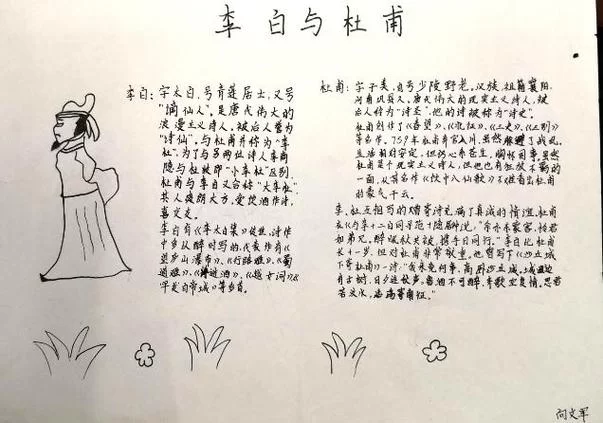 李白与杜甫
李白：字太白，号青莲居士，又号
“谪仙人”。是唐代伟大的
浪漫主义诗人，被后人誉为
“诗仙”，与杜甫并称为“李
杜”，为了与另两位诗人李商
隐与杜牧即“小李杜”区别，
杜甫与李白又合称“大李杜”。
其人俊朗大方，爱饮酒作诗，
喜交友。
李白有《李太白集》传世，诗作
中多以醉时写的，代表作有《
望庐山瀑布》、《行路难》、《蜀
道难》、《将进酒》、《越女词》、《
早发白帝城》等多首。
杜甫：字子美，自号少陵野老。汉族，祖籍襄阳，
河南巩县人。唐代伟大的现实主义诗人，被
后人称为“诗圣”，他的诗被称为“诗史”。
杜甫创作了《春望》、《北征》、《三吏》、《三别》
等名作。759年杜甫弃官入川，虽然躲避了战乱，
生活相对安定，但仍心系苍生，胸怀国事。虽然
杜甫是个现实主义诗人，但他也有狂放不羁的
一面，从其名作《饮中八仙歌》不难看出杜甫
的豪气干云。
李、杜互相写的赠寄诗文，满了真诚的情谊，杜甫
在《与李十二白同寻范十隐居》说，“余亦东蒙客，怜君
如弟兄。醉眠秋共被，携手日同行。”李白比杜甫
长十一岁，但对杜甫非常敬重，他曾写下《沙丘城
下寄杜甫》一诗：“我来竟何事，高卧沙丘城。城边
有古树，日夕连秋声。鲁酒不可醉，齐歌空复情。思君
若汶水，浩荡寄南征。”
向文军